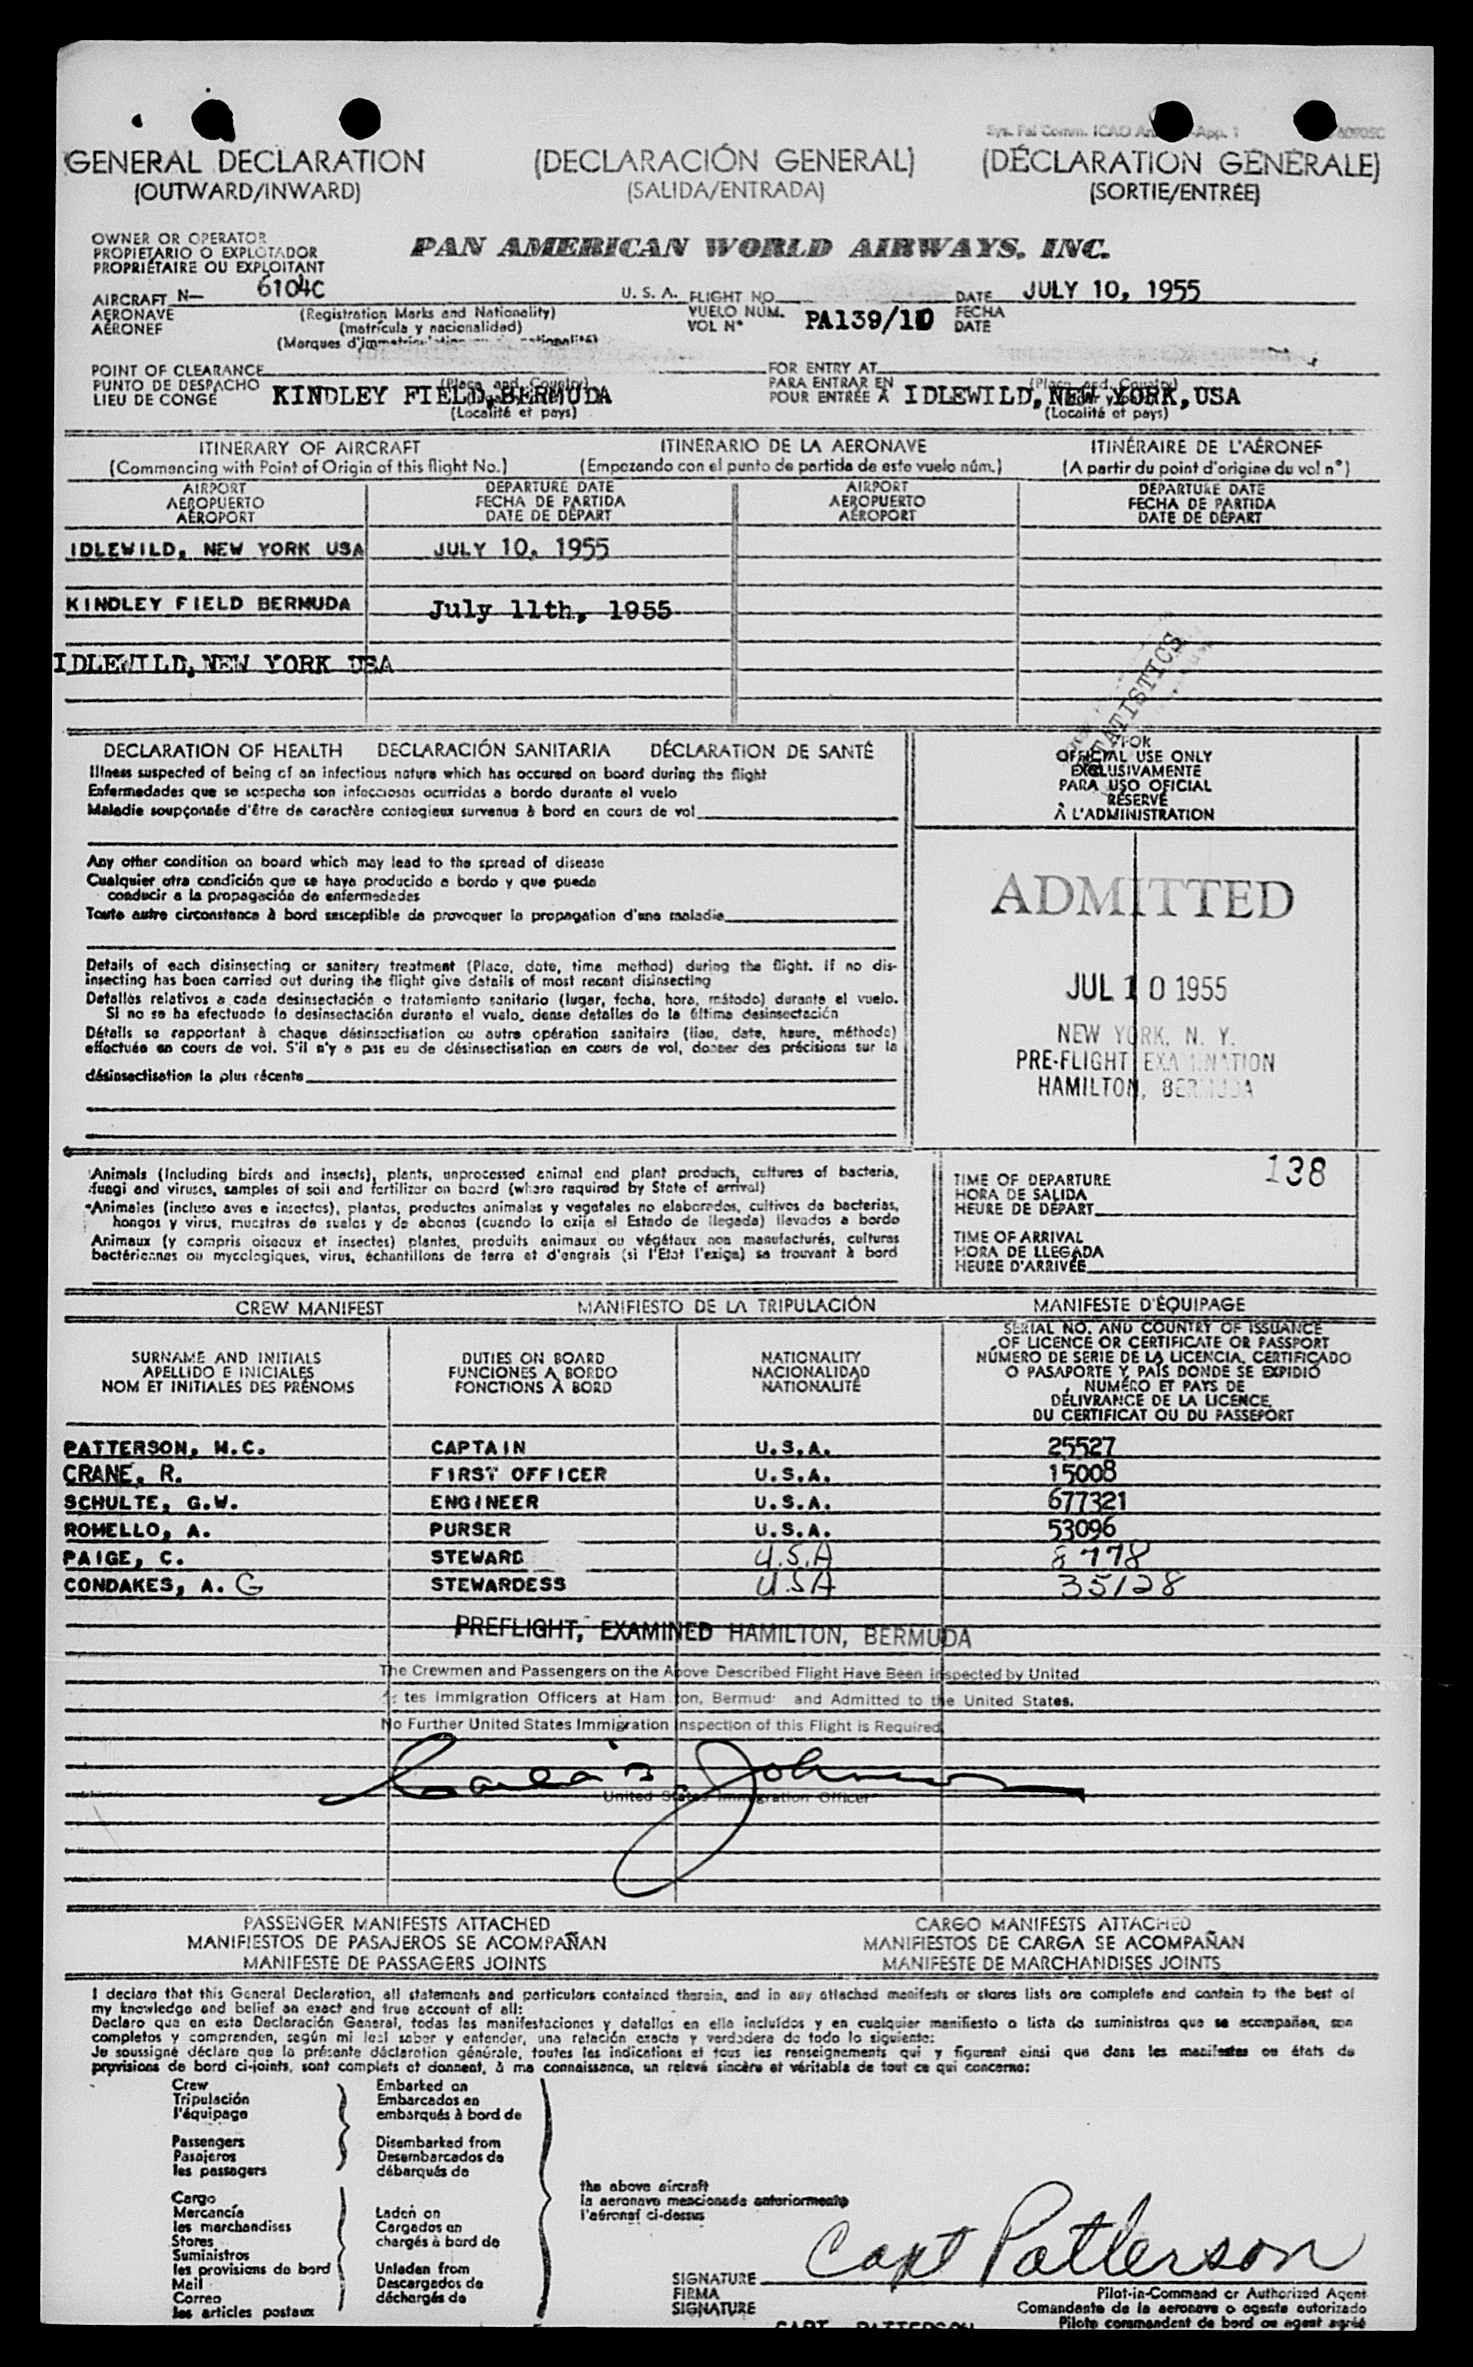 Sys. Fal Comm. ICAO App. 1
GENERAL DECLARATION (DECLARACIÓN GENERAL) (DÉCLARATION GÉNÉRALE)
(OUTWARD/INWARD) (SALIDA/ENTRADA) (SORTIE/ENTRÉE)
OWNER OR OPERATOR
PROPIETARIO O EXPLOTADOR
PROPRIÉTAIRE OU EXPLOITANT
PAN AMERICAN WORLD AIRWAYS, INC.
AIRCRAFT N— 6104C U. S. A. FLIGHT NO. DATE JULY 10, 1955
AERONAVE (Registration Marks and Nationality) VUELO NÚM. PA139/10 FECHA
AÉRONEF (matrícula y nacionalidad) VOL N° DATE
(Marques d'immatriculation nationalité)
POINT OF CLEARANCE FOR ENTRY AT
PUNTO DE DESPACHO KINDLEY FIELD, BERMUDA (Place and Country) PARA ENTRAR EN IDLEWILD, NEW YORK, USA (Place and Country)
LIEU DE CONGÉ (Localité et pays) POUR ENTRÉE À (Localité et pays)
ITINERARY OF AIRCRAFT ITINERARIO DE LA AERONAVE ITINÉRAIRE DE L'AÉRONEF
(Commencing with Point of Origin of this flight No.) (Empezando con el punto de partida de este vuelo núm.) (A partir du point d'origine du vol n°)
AIRPORT DEPARTURE DATE AIRPORT DEPARTURE DATE
AEROPUERTO FECHA DE PARTIDA AEROPUERTO FECHA DE PARTIDA
AÉROPORT DATE DE DÉPART AÉROPORT DATE DE DÉPART
IDLEWILD, NEW YORK USA JULY 10, 1955
KINDLEY FIELD BERMUDA July 11th, 1955
IDLEWILD, NEW YORK USA
STATISTICS
DECLARATION OF HEALTH DECLARACIÓN SANITARIA DÉCLARATION DE SANTÉ
Illness suspected of being of an infectious nature which has occured on board during the flight
Enfermedades que se sospecha son infecciosas ocurridas a bordo durante el vuelo
Maladie soupçonnée d'être de caractère contagieux survenue à bord en cours de vol
Any other condition on board which may lead to the spread of disease
Cualquier otra condición que se haya producido a bordo y que pueda
conducir a la propagación de enfermedades
Toute autre circonstance à bord susceptible de provoquer la propagation d'une maladie
Details of each disinsecting or sanitary treatment (Place, date, time method) during the flight. If no dis-
insecting has been carried out during the flight give details of most recent disinsecting
Detalles relativos a cada desinsectación o tratamiento sanitario (lugar, fecha, hora, método) durante el vuelo.
Si no se ha efectuado la desinsectación durante el vuelo, dense detalles de la última desinsectación
Détails se rapportant à chaque désinsectisation ou autre opération sanitaire (lieu, date, heure, méthode)
effectuée en cours de vol. S'il n'y a pas eu de désinsectisation en cours de vol, donner des précisions sur la
désinsectisation la plus récente
FOR
OFFICIAL USE ONLY
EXCLUSIVAMENTE
PARA USO OFICIAL
RÉSERVÉ
À L'ADMINISTRATION
ADMITTED
JUL 10 1955
NEW YORK, N. Y.
PRE-FLIGHT EXAMINATION
HAMILTON, BERMUDA
Animals (Including birds and insects), plants, unprocessed animal and plant products, cultures of bacteria,
fungi and viruses, samples of soil and fertilizer on board (where required by State of arrival)
Animales (incluso aves e insectos), plantas, productos animales y vegetales no elaborados, cultivos de bacterias,
hongos y virus, muestras de suelos y de abonos (cuando lo exija el Estado de llegada) llevados a bordo
Animaux (y compris oiseaux et insectes) plantes, produits animaux ou végétaux non manufacturés, cultures
bactériennes ou mycologiques, virus, échantillons de terre et d'engrais (si l'Etat l'exige) se trouvant à bord
TIME OF DEPARTURE 138
HORA DE SALIDA
HEURE DE DÉPART
TIME OF ARRIVAL
HORA DE LLEGADA
HEURE D'ARRIVÉE
CREW MANIFEST MANIFIESTO DE LA TRIPULACIÓN MANIFESTE D'ÉQUIPAGE
SURNAME AND INITIALS
APELLIDO E INICIALES
NOM ET INITIALES DES PRÉNOMS
DUTIES ON BOARD
FUNCIONES A BORDO
FONCTIONS À BORD
NATIONALITY
NACIONALIDAD
NATIONALITÉ
SERIAL NO. AND COUNTRY OF ISSUANCE
OF LICENCE OR CERTIFICATE OR PASSPORT
NÚMERO DE SERIE DE LA LICENCIA, CERTIFICADO
O PASAPORTE Y PAÍS DONDE SE EXPIDIÓ
NUMÉRO ET PAYS DE
DÉLIVRANCE DE LA LICENCE,
DU CERTIFICAT OU DU PASSEPORT
PATTERSON, H.C. CAPTAIN U.S.A. 25527
CRANE, R. FIRST OFFICER U.S.A. 15008
SCHULTE, G.W. ENGINEER U.S.A. 677321
ROMELLO, A. PURSER U.S.A. 53096
PAIGE, C. STEWARD U.S.A 8778
CONDAKES, A. G STEWARDESS U.S.A 35128
PREFLIGHT, EXAMINED HAMILTON, BERMUDA
The Crewmen and Passengers on the Above Described Flight Have Been Inspected by United
States Immigration Officers at Hamilton, Bermuda and Admitted to the United States.
No Further United States Immigration Inspection of this Flight is Required
Johnson
United States Immigration Officer
PASSENGER MANIFESTS ATTACHED CARGO MANIFESTS ATTACHED
MANIFIESTOS DE PASAJEROS SE ACOMPAÑAN MANIFIESTOS DE CARGA SE ACOMPAÑAN
MANIFESTE DE PASSAGERS JOINTS MANIFESTE DE MARCHANDISES JOINTS
I declare that this General Declaration, all statements and particulars contained therein, and in any attached manifests or stores lists are complete and contain to the best of
my knowledge and belief an exact and true account of all:
Declaro que en esta Declaración General, todas las manifestaciones y detalles en ella incluídos y en cualquier manifiesto o lista de suministros que se acompañen, son
completos y comprenden, según mi leal saber y entender, una relación exacta y verdadera de todo lo siguiente:
Je soussigné déclare que la présente déclaration générale, toutes les indications et tous les renseignements qui y figurent ainsi que dans les manifestes ou états de
provisions de bord ci-joints, sont complets et donnent, à ma connaissance, un relevé sincère et véritable de tout ce qui concerne:
Crew Embarked on
Tripulación Embarcados en
l'équipage embarqués à bord de
Passengers Disembarked from
Pasajeros Desembarcados de
les passagers débarqués de
Cargo
Mercancía Laden on
les marchandises Cargados en
Stores chargés à bord de
Suministros
les provisions de bord Unladen from
Mail Descargados de
Correo déchargés de
les articles postaux
the above aircraft
la aeronave mencionada anteriormente
l'aéronef ci-dessus
Capt Patterson
SIGNATURE
FIRMA
SIGNATURE
Pilot-in-Command or Authorized Agent
Comandante de la aeronave o agente autorizado
Pilote commandant de bord ou agent agréé
CAPT PATTERSON